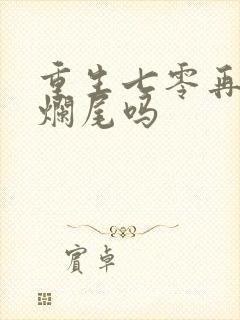 重生七零再
爛尾吗
賓卓